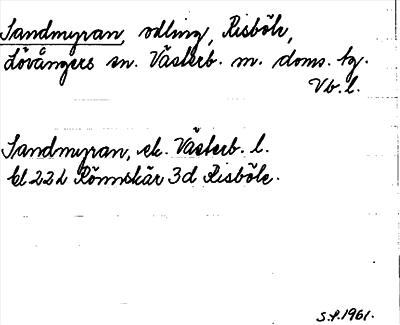 Sandmyran, odling, Risböle,
Lövångers sn. Västerb. m. doms. tg.
Vb. l.
Sandmyran, ek. Västerb. l.
Bl 22 L Rönnskär 3d Risböle.
S.f. 1961.